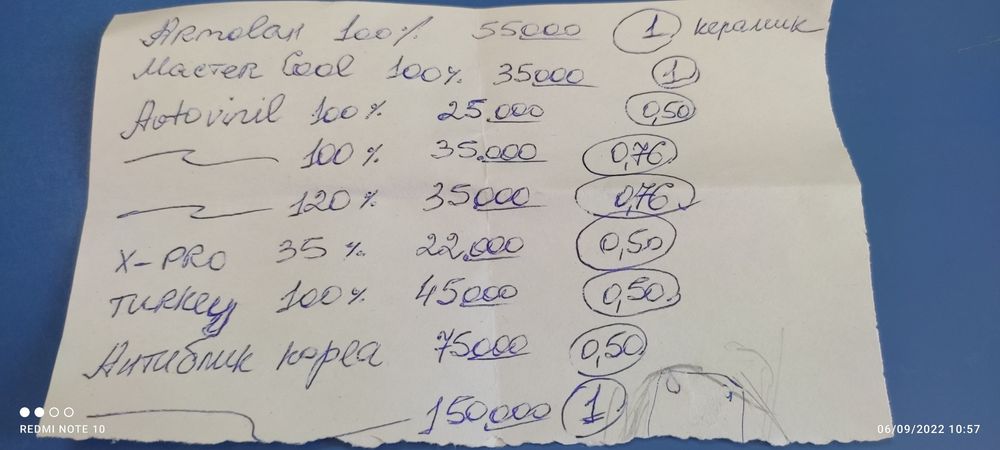 Armolan 100% 55000 1 керамик
Мастер Cool 100% 35000 1
Avtovinil 100% 25.000 0,50
100% 35.000 0,76
120% 35000 0,76
X-PRO 35% 22.000 0,50
Turkey 100% 45000 0,50
Антиблик корea 75000 0,50
150,000 1
REDMI NOTE 10
06/09/2022 10:57